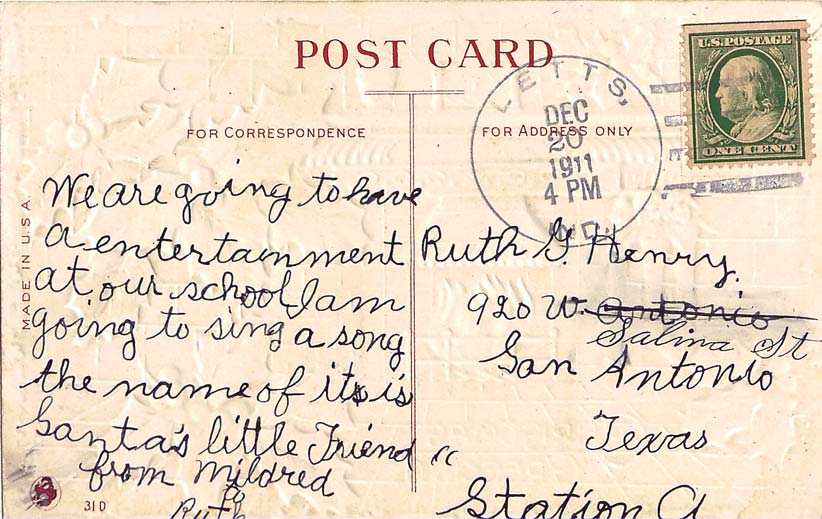 POST CARD
FOR CORRESPONDENCE
FOR ADDRESS ONLY
MADE IN U.S.A.
U.S. POSTAGE
ONE CENT
LETTS,
DEC
20
1911
4 PM
IND.
We are going to have
a entertainment
at our school I am
going to sing a song
the name of its is
Santa's little Friend "
from Mildred
to
Ruth
Ruth G. Henry.
920 W. Antonio
Salina St
San Antonio
Texas
Station A
31D